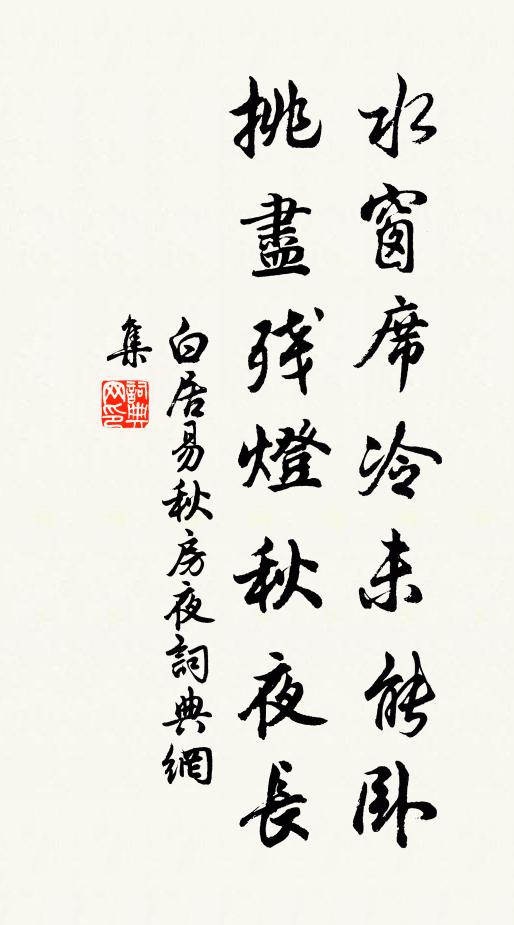 水窗席冷未能卧
挑盡残燈秋夜長
白居易秋房夜詞典網
集
詞典
网印